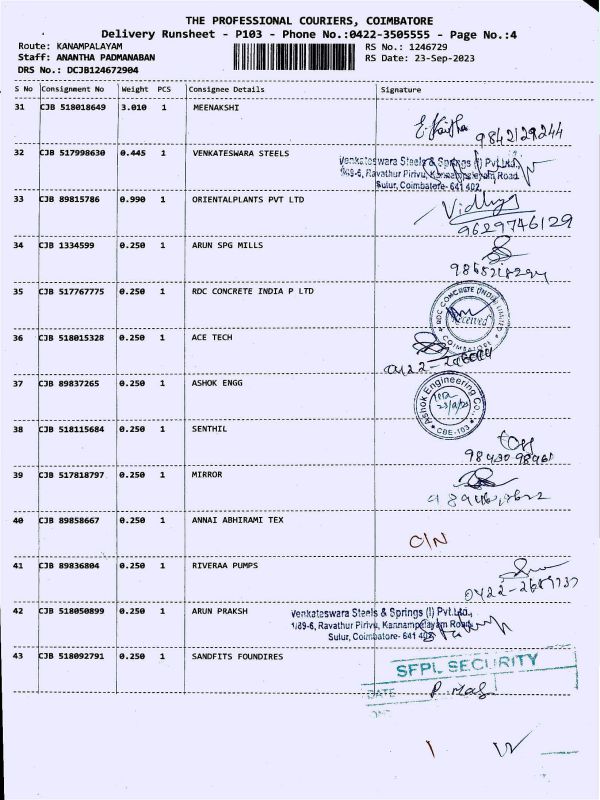 THE PROFESSIONAL COURIERS, COIMBATORE
Delivery Runsheet - P103 - Phone No.:0422-3505555 - Page No.:4
Route: KANAMPALAYAM RS No.: 1246729
Staff: ANANTHA PADMANABAN RS Date: 23-Sep-2023
DRS No.: DCJB124672904
S No Consignment No Weight PCS Consignee Details Signature
31 CJB 518018649 3.010 1 MEENAKSHI
9842129244
32 CJB 517998630 0.445 1 VENKATESWARA STEELS
Venkateswara Steels & Springs (I) Pvt.Ltd.,
1/89-6, Ravathur Pirivu, Kannampalayam Road
Sulur, Coimbatore- 641 402
33 CJB 89815786 0.990 1 ORIENTALPLANTS PVT LTD
Vidhya
9629746129
34 CJB 1334599 0.250 1 ARUN SPG MILLS
35 CJB 517767775 0.250 1 RDC CONCRETE INDIA P LTD
RDC CONCRETE (INDIA) LIMITED
Received
COIMBATORE
36 CJB 518015328 0.250 1 ACE TECH
37 CJB 89837265 0.250 1 ASHOK ENGG
Ashok Engineering Co.,
CBE-103
38 CJB 518115684 0.250 1 SENTHIL
39 CJB 517818797 0.250 1 MIRROR
40 CJB 89858667 0.250 1 ANNAI ABHIRAMI TEX
C/N
41 CJB 89836804 0.250 1 RIVERAA PUMPS
42 CJB 518050899 0.250 1 ARUN PRAKSH
Venkateswara Steels & Springs (I) Pvt.Ltd.,
1/89-6, Ravathur Pirivu, Kannampalayam Road,
Sulur, Coimbatore- 641 402
43 CJB 518092791 0.250 1 SANDFITS FOUNDIRES
SFPL SECURITY
DATE